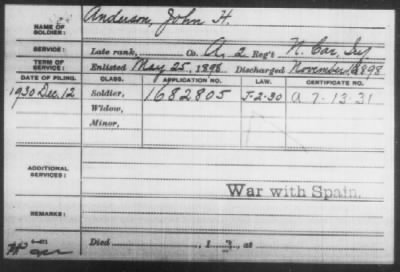 NAME OF SOLDIER: Anderson, John H.
SERVICE: Late rank, Co. A, 2 Reg't N. Car. Inf
TERM OF SERVICE: Enlisted May 25, 1898 Discharged November 1898
DATE OF FILING. CLASS. APPLICATION NO. LAW. CERTIFICATE NO.
1930 Dec. 12 Soldier, 1682805 J-2-30 a 7-13-31
Widow,
Minor,
ADDITIONAL SERVICES:
War with Spain.
REMARKS:
Died , 1 , at